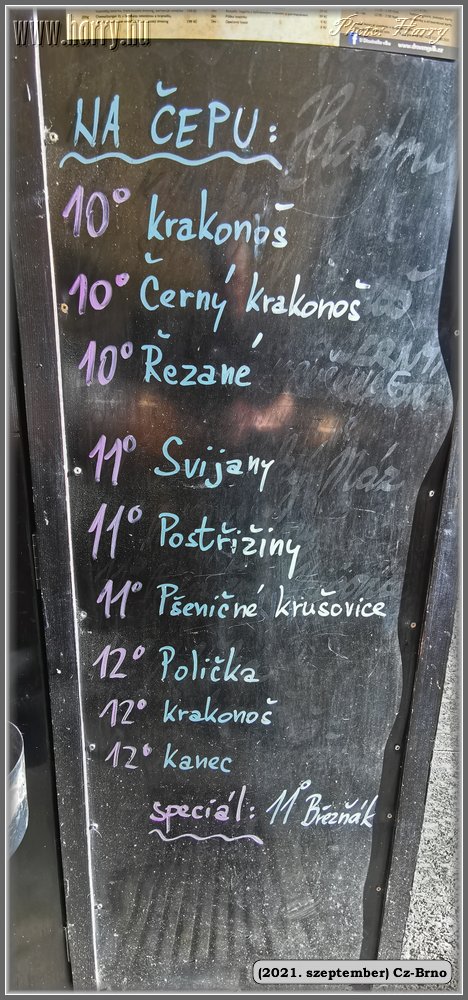 www.harry.hu
Photo: Harry
www.drevengrilk.cz
NA ČEPU:
10° krakonoš
10° Černý krakonoš
10° Řezané
11° Svijany
11° Postřižiny
11° Pšeničné krušovice
12° Polička
12° krakonoš
12° kanec
speciál: 11° Březňák
(2021. szeptember) Cz-Brno